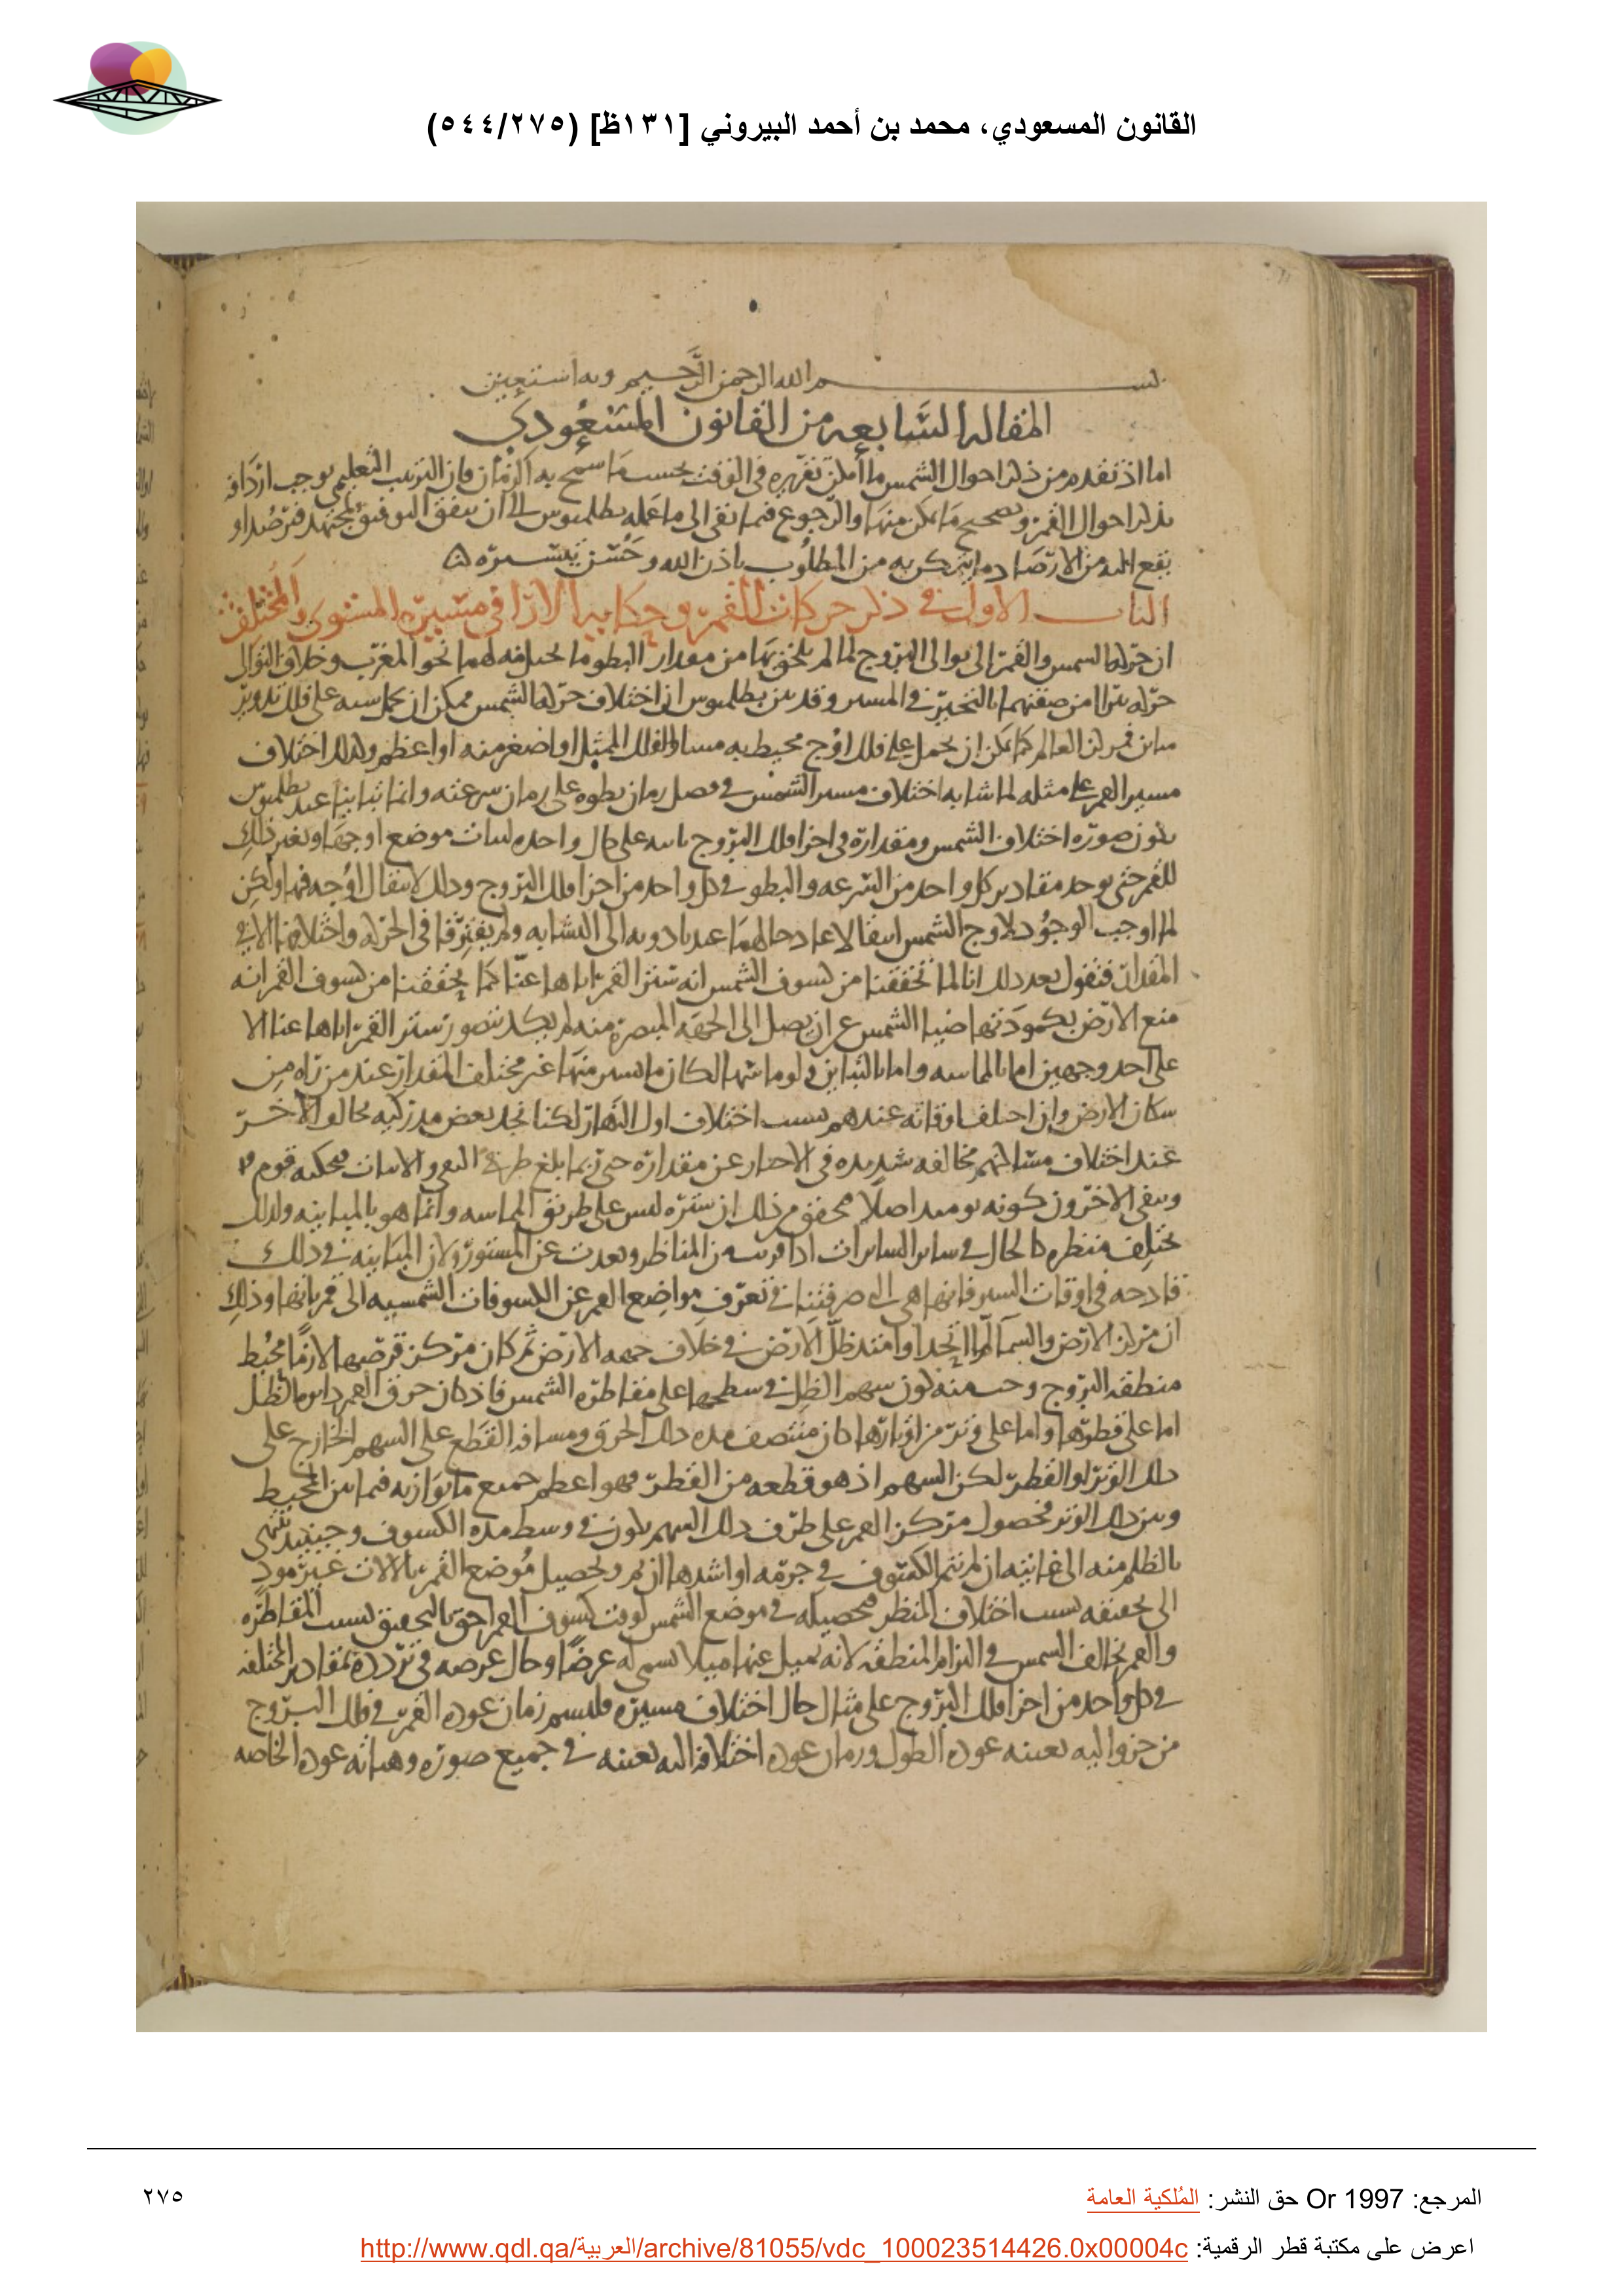 القانون المسعودي، محمد بن أحمد البيروني [١٣١ظ] (٥٤٤/٢٧٥)
بسم الله الرحمن الرحيم وبه استعين
المقالة السابعة من القانون المسعودي
اما اذ تقدم من ذكر احوال الشمس ما امكن تقريره في الوقت بحسب ما سمح به الزمان فان الترتيب التعليمي يوجب اردافه
بذكر احوال القمر وتصحيح ما يمكن منها والرجوع فيما بقى الى ما عمله بطلميوس الى ان يتفق التوفيق لمجتهد فيرصد او
يقع اليه من الارصاد ما يتمكن به من المطلوب باذن الله وحسن تيسيره
الباب الاول في ذكر حركات القمر وحكاية الارا في مسيره المستوى والمختلف
ان حركة الشمس والقمر الى توالى البروج لما لم يلحق بها من مقدار البطو ما يخيل منه لهما نحو المغرب وخلاف التوالى
حركة تبرا من صفتهما بالتحير في المسير وقد بين بطلميوس ان اختلاف حركة الشمس ممكن ان يحمل على فلك تدوير
كما يمكن ان يحمل على فلك اوج محيط به مساو للفلك الممثل او اصغر منه او اعظم وكذلك اختلاف
مسير القمر على مثله لما شابه اختلاف مسير الشمس في فضل زمان بطوه على زمان سرعته وانما تباينا عند بطلميوس
بكون صورة اختلاف الشمس ومقداره في اجزا فلك البروج ثابتة على حال واحدة لثبات موضع اوجها وتغير ذلك
للقمر حتى يوجد مقادير كل واحد من السرعة والبطو في كل واحد من اجزا فلك البروج وذلك لانتقال اوجه فيها ولكن
لما اوجب الوجود لاوج الشمس انتقالا عاد حالهما عند بادوبه الى التشابه ولم يفترقا في الحركة واختلافها الا في
المقدار فنقول بعد ذلك انا لما تحققنا من كسوف الشمس انه ستر القمر اياها عنا كما تحققنا من كسوف القمر انه
منع الارض بكمودتها ضيا الشمس عن ان يصل الى الجهة المبصرة منه لم يكد يتصور ستر القمر اياها عنا الا
على احد وجهين اما بالمماسة واما بالتباين ولو ماسها لكان ما يستر منها غير مختلف المقدار عند من يراه من
سكان الارض وان اختلف اوقاته عندهم بسبب اختلاف اول النهار لكنا نجد بعض مدركيه يخالف الاخر
عند اختلاف مساكنهم مخالفة شديدة في الاخبار عن مقداره حتى ربما بلغ طرفي النفي والاثبات فيحكيه قوم
وينفي الاخرون كونه يوميذ اصلا فتحقق من ذلك ان ستره ليس على طريق المماسة وانما هو بالمباينة ولذلك
يختلف منظره كالحال في ساير الساترات اذا قربت من الناظر وبعدت عن المستور ولان المباينة في ذلك
قادحة في اوقات الستر فانها هي التي صرفتنا في تعرف مواضع القمر عن الكسوفات الشمسية الى قمرياتها وذلك
ان مركز الارض والسما لما اتحدا وامتد ظل الارض في خلاف جهة الارض ثم كان مركز قرصها لازما محيط
منطقة البروج وجب منه كون سهم الظل في سطحها على مقاطرة الشمس فاذ كان خرق القمر دايرة الظل
اما على قطرها واما على وتر من اوتارها كان منتصف مدة ذلك الخرق ومسافة القطع على السهم الخارج على
ذلك الوتر او القطر لكن السهم اذ هو قطعة من القطر فهو اعظم جميع ما يوازيه فيما بين المحيط
وبين ذلك الوتر فحصول مركز القمر على طرف ذلك السهم يكون في وسط مدة الكسوف وحينيذ ينتهى
بالظلم منه الى غايته ان لم يتم الكسوف في جرمه او اشدها ان تم وتحصيل موضع القمر بالالات غير مود
الى تحقيقه بسبب اختلاف المنظر فتحصيله في موضع الشمس لوقت كسوف القمر احق بالتحقيق بسبب المقاطرة
والقمر يخالف الشمس في التزام المنطقة لانه يميل عنها ميلا يسمى له عرضا وحال عرضه في تردده بمقادير المختلفة
في كل واحد من اجزا فلك البروج على مثال حال اختلاف مسيره فليسم زمان عودة القمر في فلك البروج
من جزو اليه بعينه عودة الطول وزمان عودة اختلافه اليه بعينه في جميع صورة وهياته عودة الخاصة
المرجع: Or 1997 حق النشر: المُلكية العامة
٢٧٥
اعرض على مكتبة قطر الرقمية: http://www.qdl.qa/العربية/archive/81055/vdc_100023514426.0x00004c